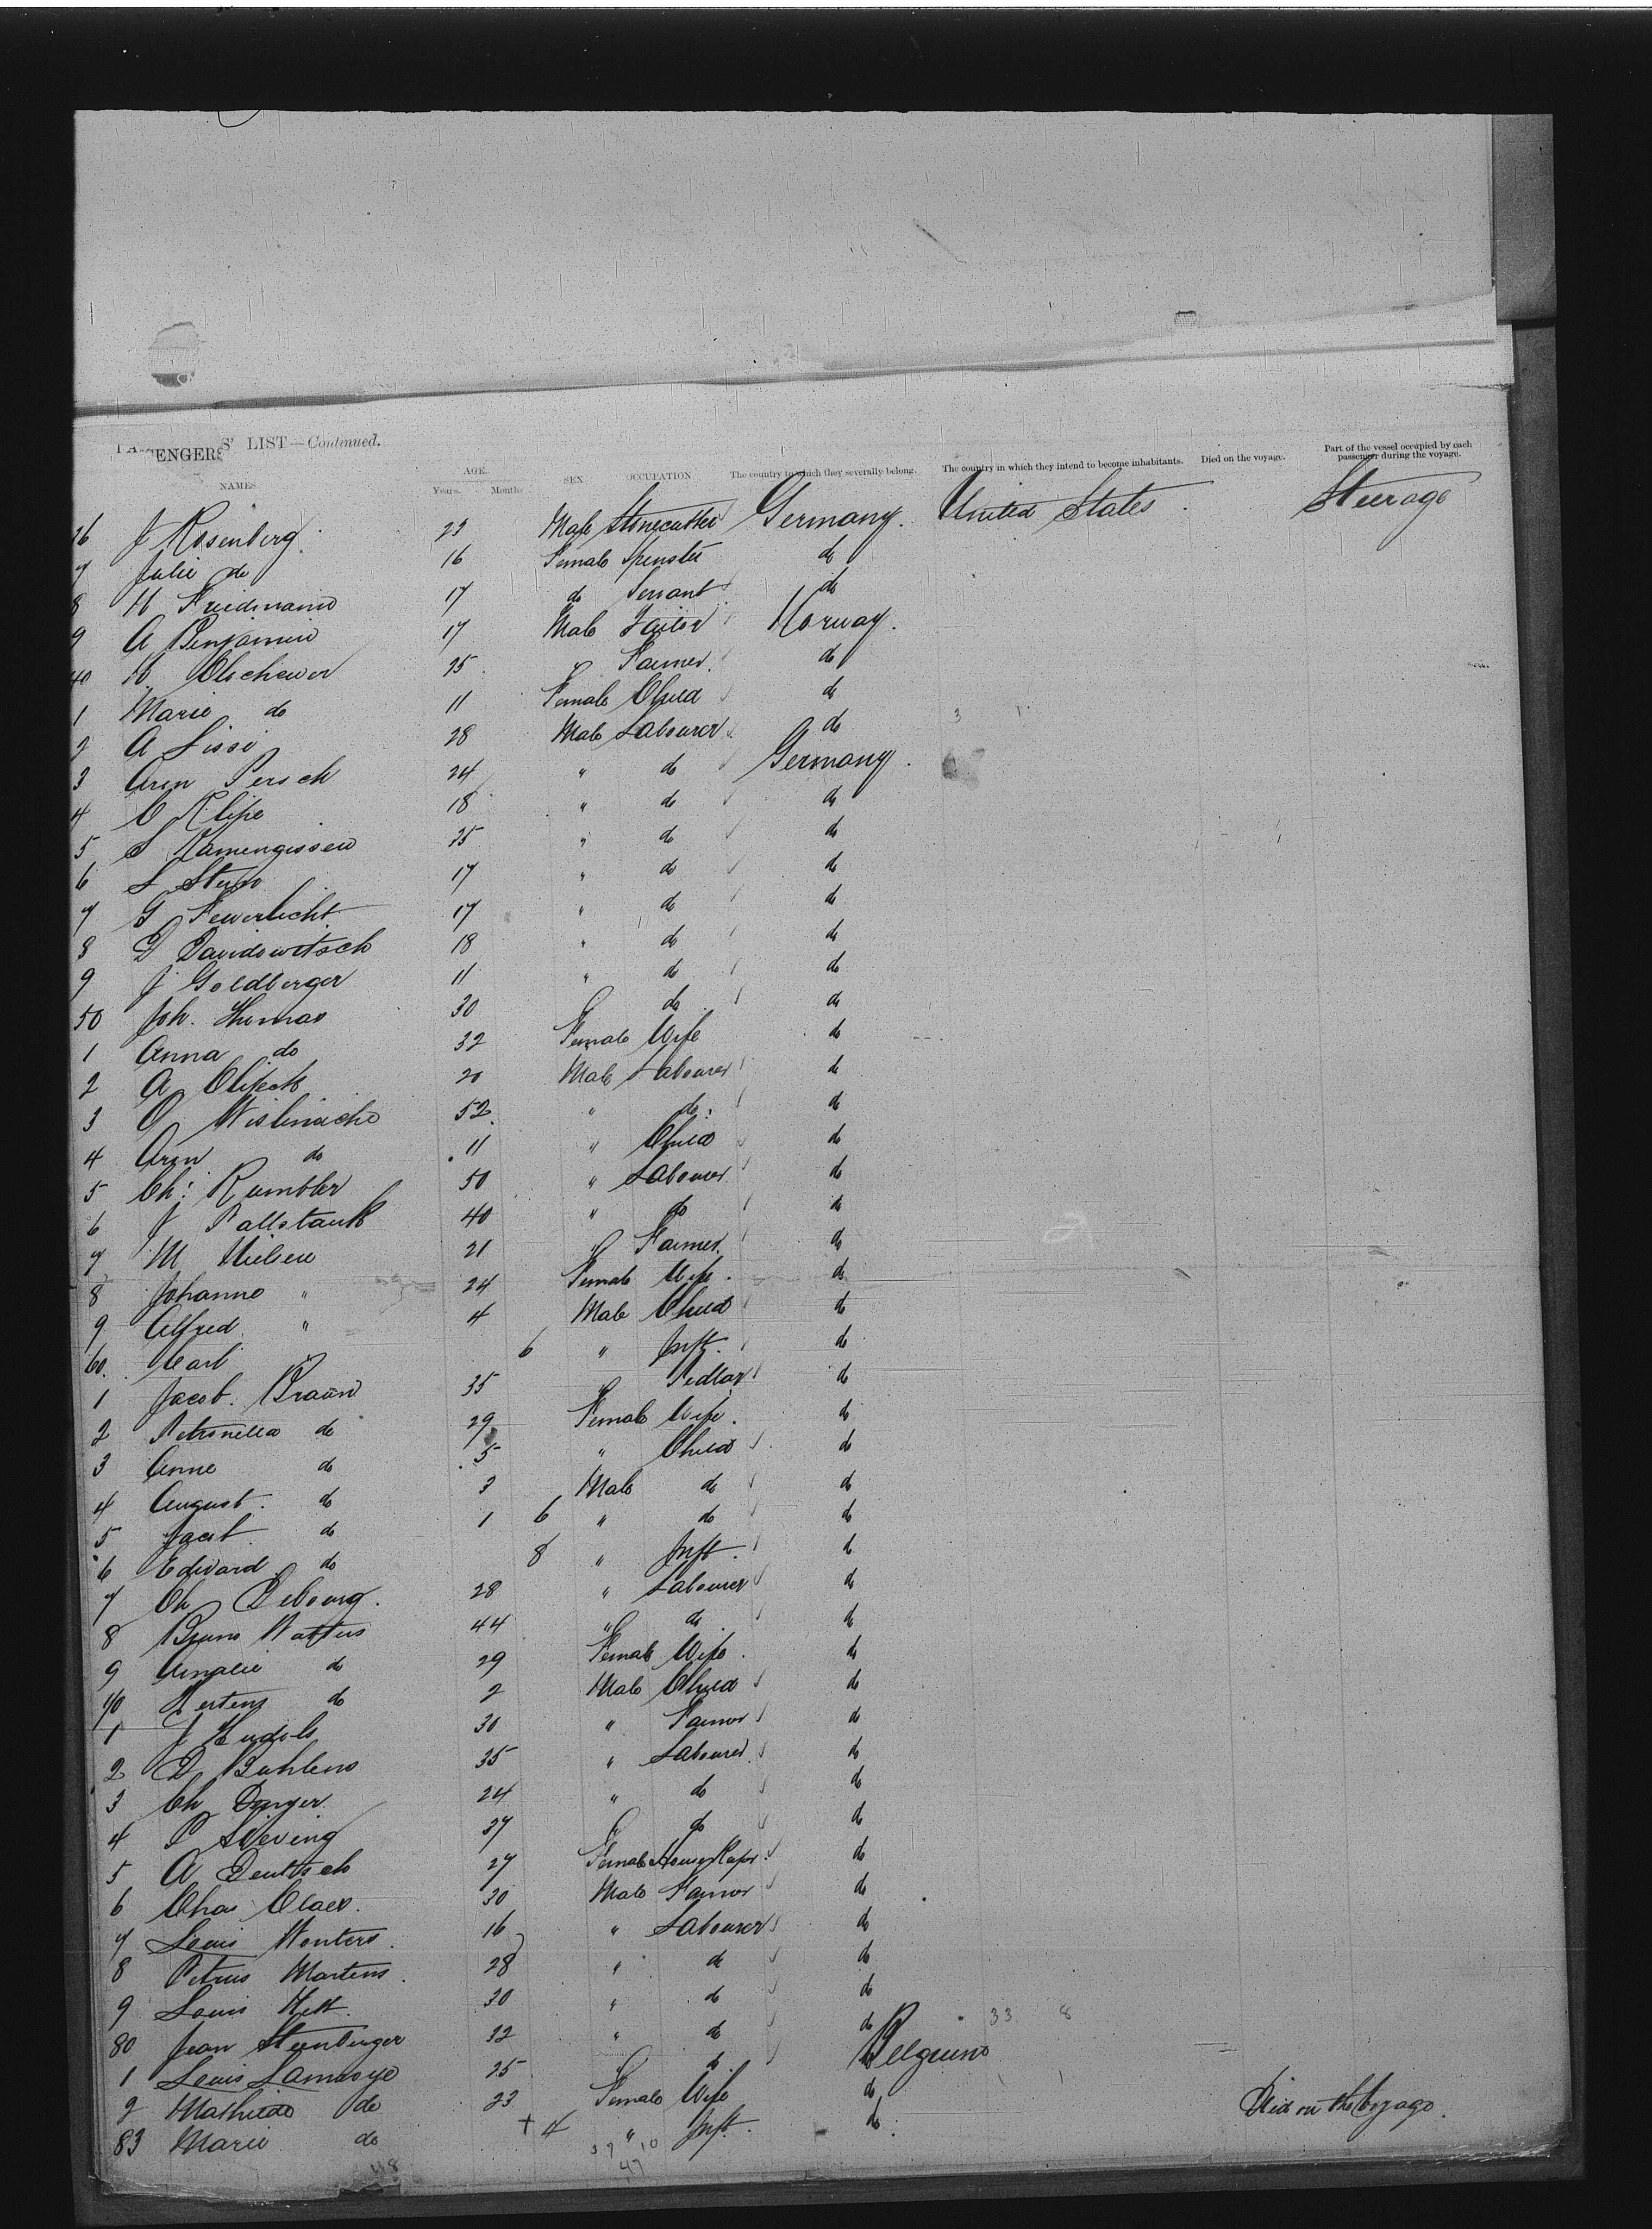 PASSENGERS' LIST—Continued.
NAMES. AGE. Years. Months. SEX. OCCUPATION. The country to which they severally belong. The country in which they intend to become inhabitants. Died on the voyage. Part of the vessel occupied by each passenger during the voyage.
36 J Rosenberg 23 Male Stonecutter Germany. United States Steerage
7 Julie do 16 Female Spinster do
8 H Friedmann 17 do Servant do
9 A Benjamin 17 Male Tailor Norway.
40 25 Farmer. do
1 Marie do 11 Female Child do
2 A Lissi 28 Male Labourer do
3 Aron Persch 24 " do Germany.
4 18 " do do
5 S 25 " do do
6 S Stein 17 " do do
7 G Feuerlicht 17 " do do
8 D Davidowitsch 18 " do do
9 J Goldberger 11 " do do
50 Joh. Thomas 30 " do do
1 Anna do 32 Female Wife do
2 A 20 Male Labourer do
3 52 " do do
4 Aron do 11 " Child do
5 Ch: Rumbler 50 " Labourer do
6 J 40 " do do
7 M Nielsen 21 " Farmer. do
8 Johanne " 24 Female Wife. do
9 Alfred " 4 Male Child do
60. Carl " 6 " Inft. do
1 Jacob. Braun 35 " Pedlar do
2 Petronella do 29 Female Wife. do
3 Anna do 5 " Child do
4 August. do 3 Male do do
5 Jacob do 1 6 " do do
6 Edward do 8 " Inft. do
7 Ch Debourg. 28 " Labourer do
8 Bruno 44 " do do
9 Amalie do 29 Female Wife. do
70 do 2 Male Child do
1 J 30 " Farmer do
2 D 35 " Labourer do
3 Ch 24 " do do
4 P Sieving 37 " do do
5 A Deutsch 27 Female do
6 Chas Claes. 30 Male Farmer do
7 Louis Wouters. 16 " Labourer do
8 Petrus Martens. 28 " do do
9 Louis 30 " do do
80 Jean Steenberger 32 " do do
1 Louis Lamroye 25 " do Belgium
2 Mathilde do 23 Female Wife do
83 Marie do + 4 " Inft. do. Died on the Voyage.
37 10
47
48